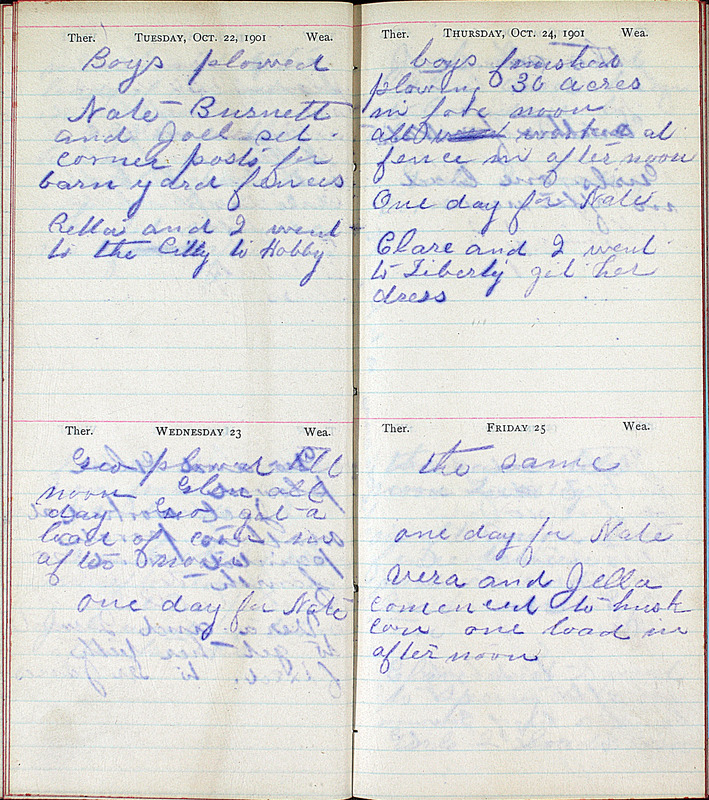 Ther. TUESDAY, OCT. 22, 1901 Wea.
Boys plowed
Nate Burnett
and Joel set
corner posts for
barn yard fences
Retta and I went
to the Citty to Hobby
Ther. WEDNESDAY 23 Wea.
Geo plowed till
noon Glen all
day Geo got a
load of corn in
after noon
one day for Nate
Ther. THURSDAY, OCT. 24, 1901 Wea.
boys finished
plowing 30 acres
in fore noon
all worked at
fence in after noon
One day for Nate
Clare and I went
to Liberty get her
dress
Ther. FRIDAY 25 Wea.
the same
one day for Nate
Vera and Jella
comenced to husk
corn one load in
after noon